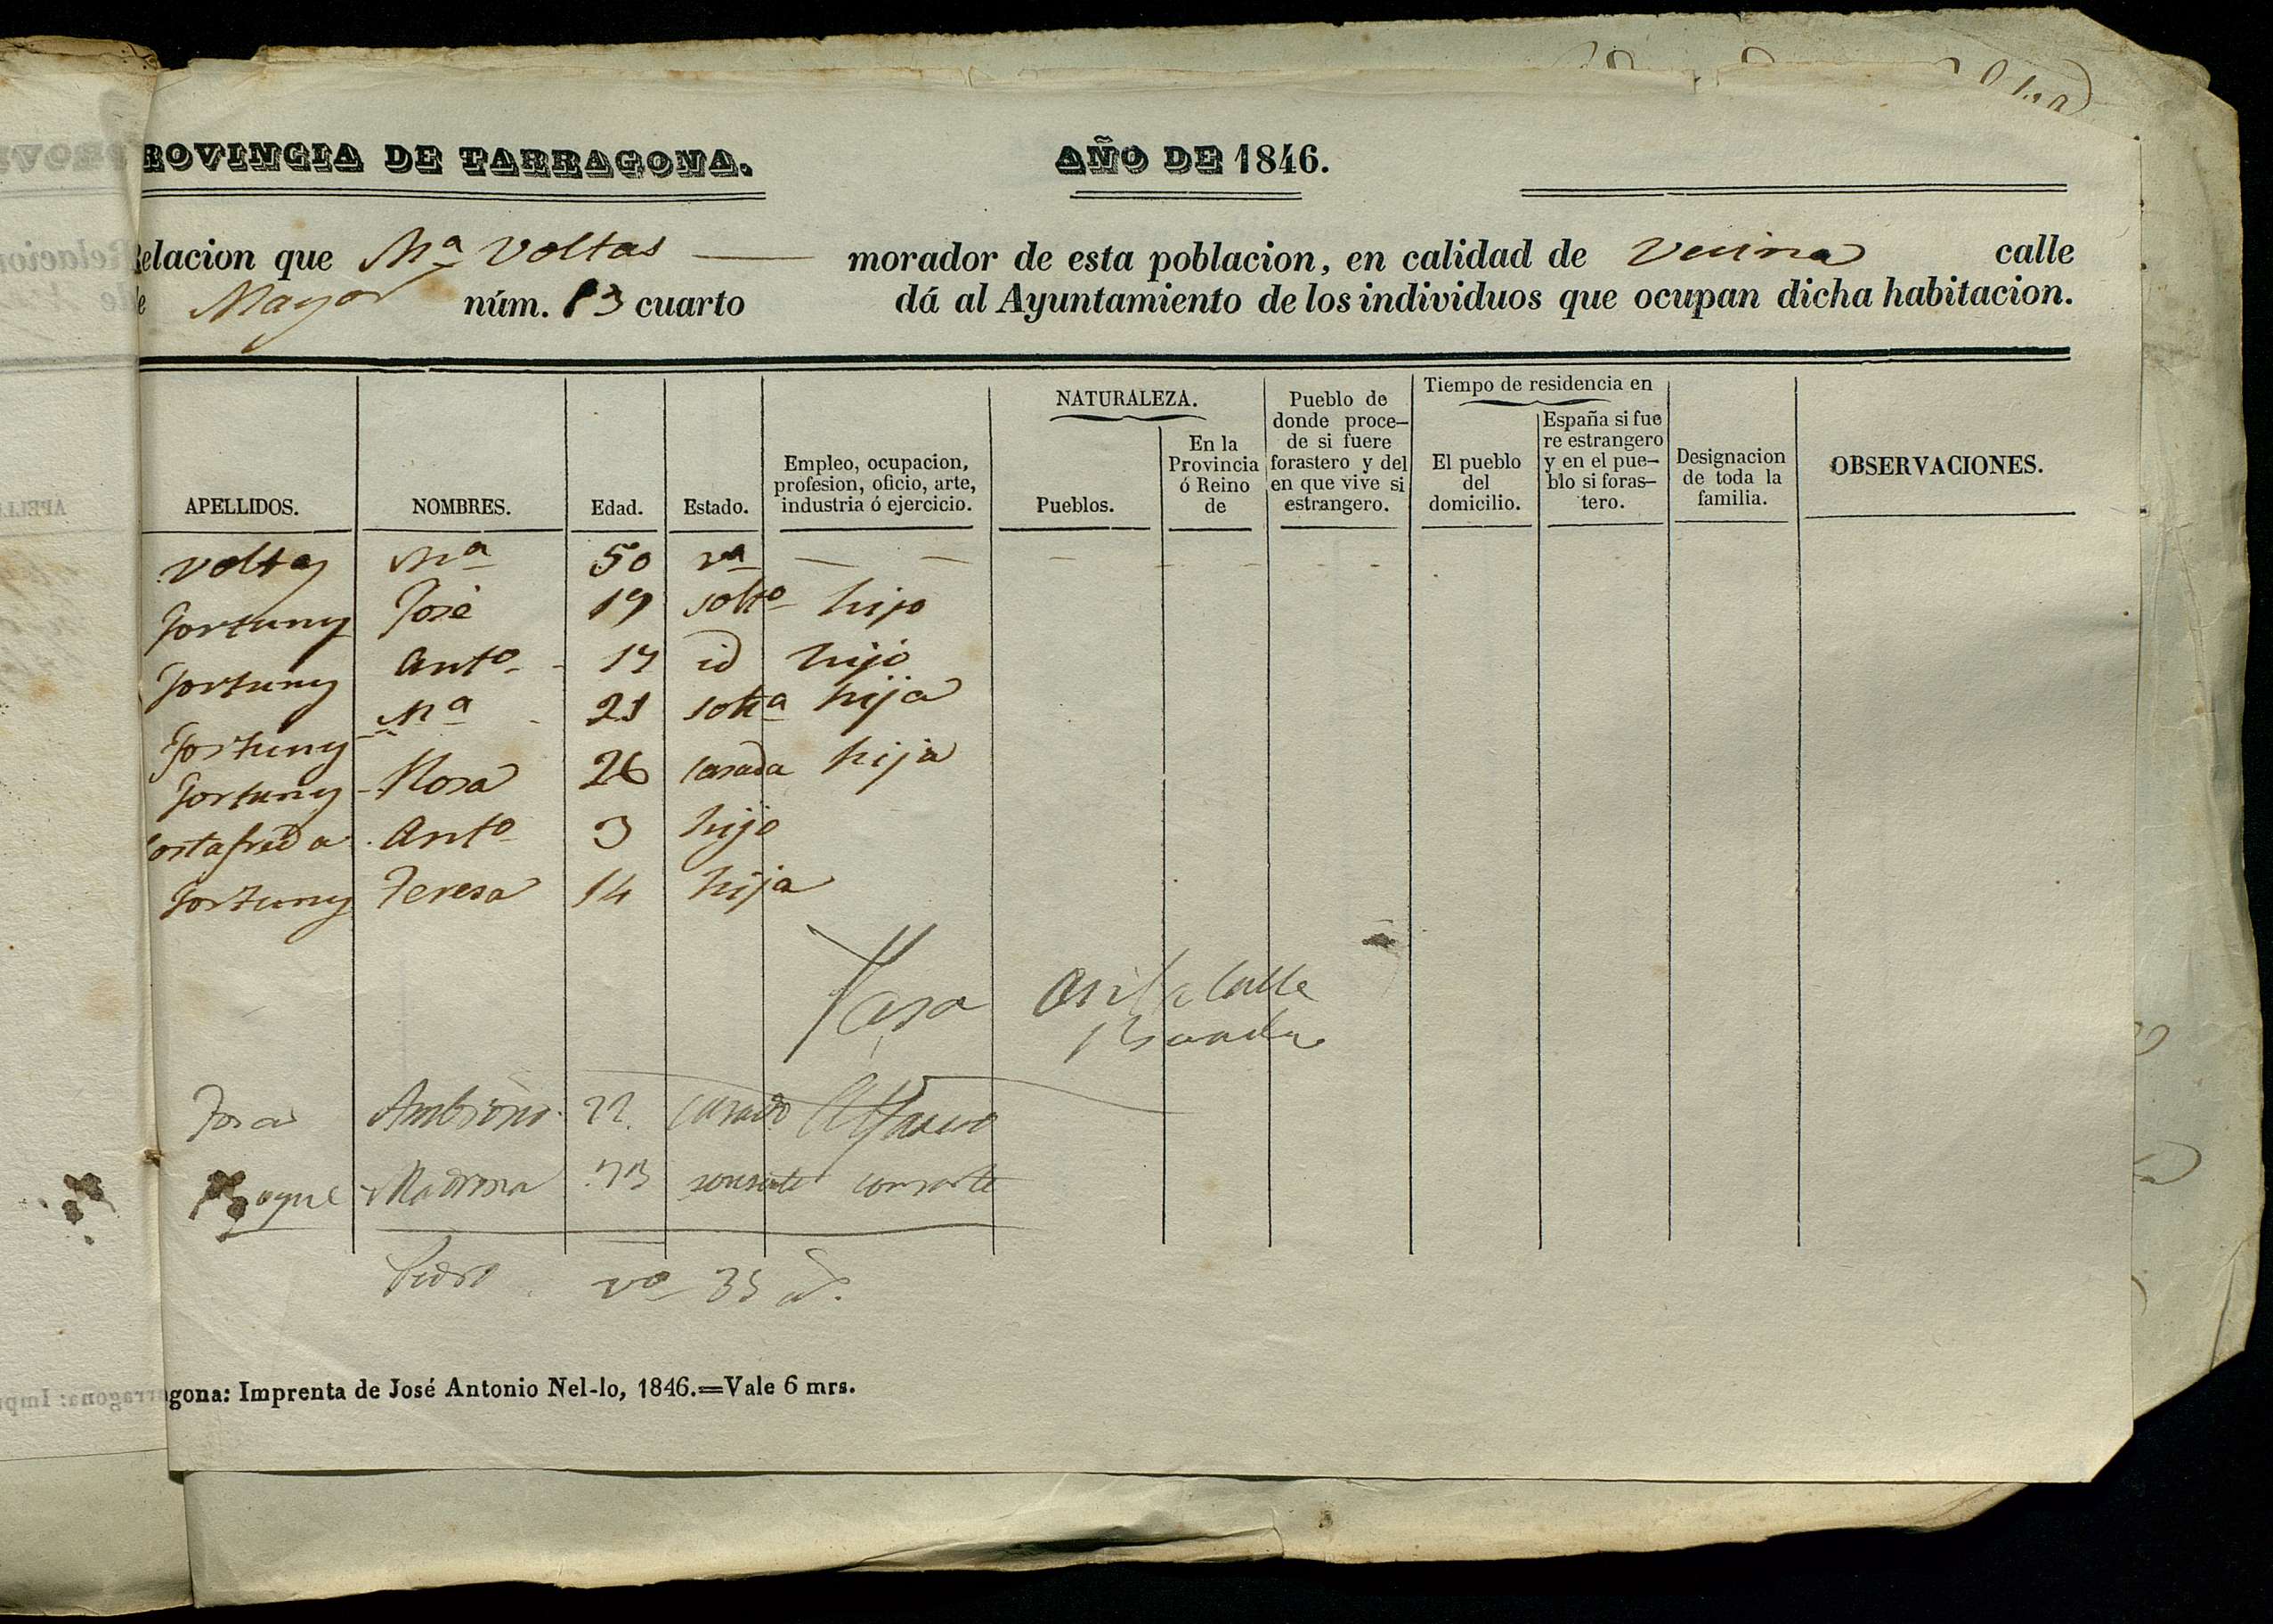 ROVINCIA DE TARRAGONA. AÑO DE 1846.
Relacion que Mª Voltas morador de esta poblacion, en calidad de Vecina calle
de Mayor núm. 13 cuarto dá al Ayuntamiento de los individuos que ocupan dicha habitacion.
APELLIDOS. NOMBRES. Edad. Estado. Empleo, ocupacion, profesion, oficio, arte, industria ó ejercicio. NATURALEZA. Pueblos. En la Provincia ó Reino de Pueblo de donde proce-de si fuere forastero y del en que vive si estrangero. Tiempo de residencia en El pueblo del domicilio. España si fue re estrangero y en el pue-blo si foras-tero. Designacion de toda la familia. OBSERVACIONES.
Voltas Mª 50 vª
Fortuny José 19 soltº hijo
Fortuny Antº 17 id hijo
Fortuny Mª 21 soltª hija
Fortuny Rosa 26 casada hija
ortafreda Antº 3 hijo
Fortuny Teresa 14 hija
Casa Calle
casado
Madrona consorte
Pedro vº 35
gona: Imprenta de José Antonio Nel-lo, 1846.=Vale 6 mrs.